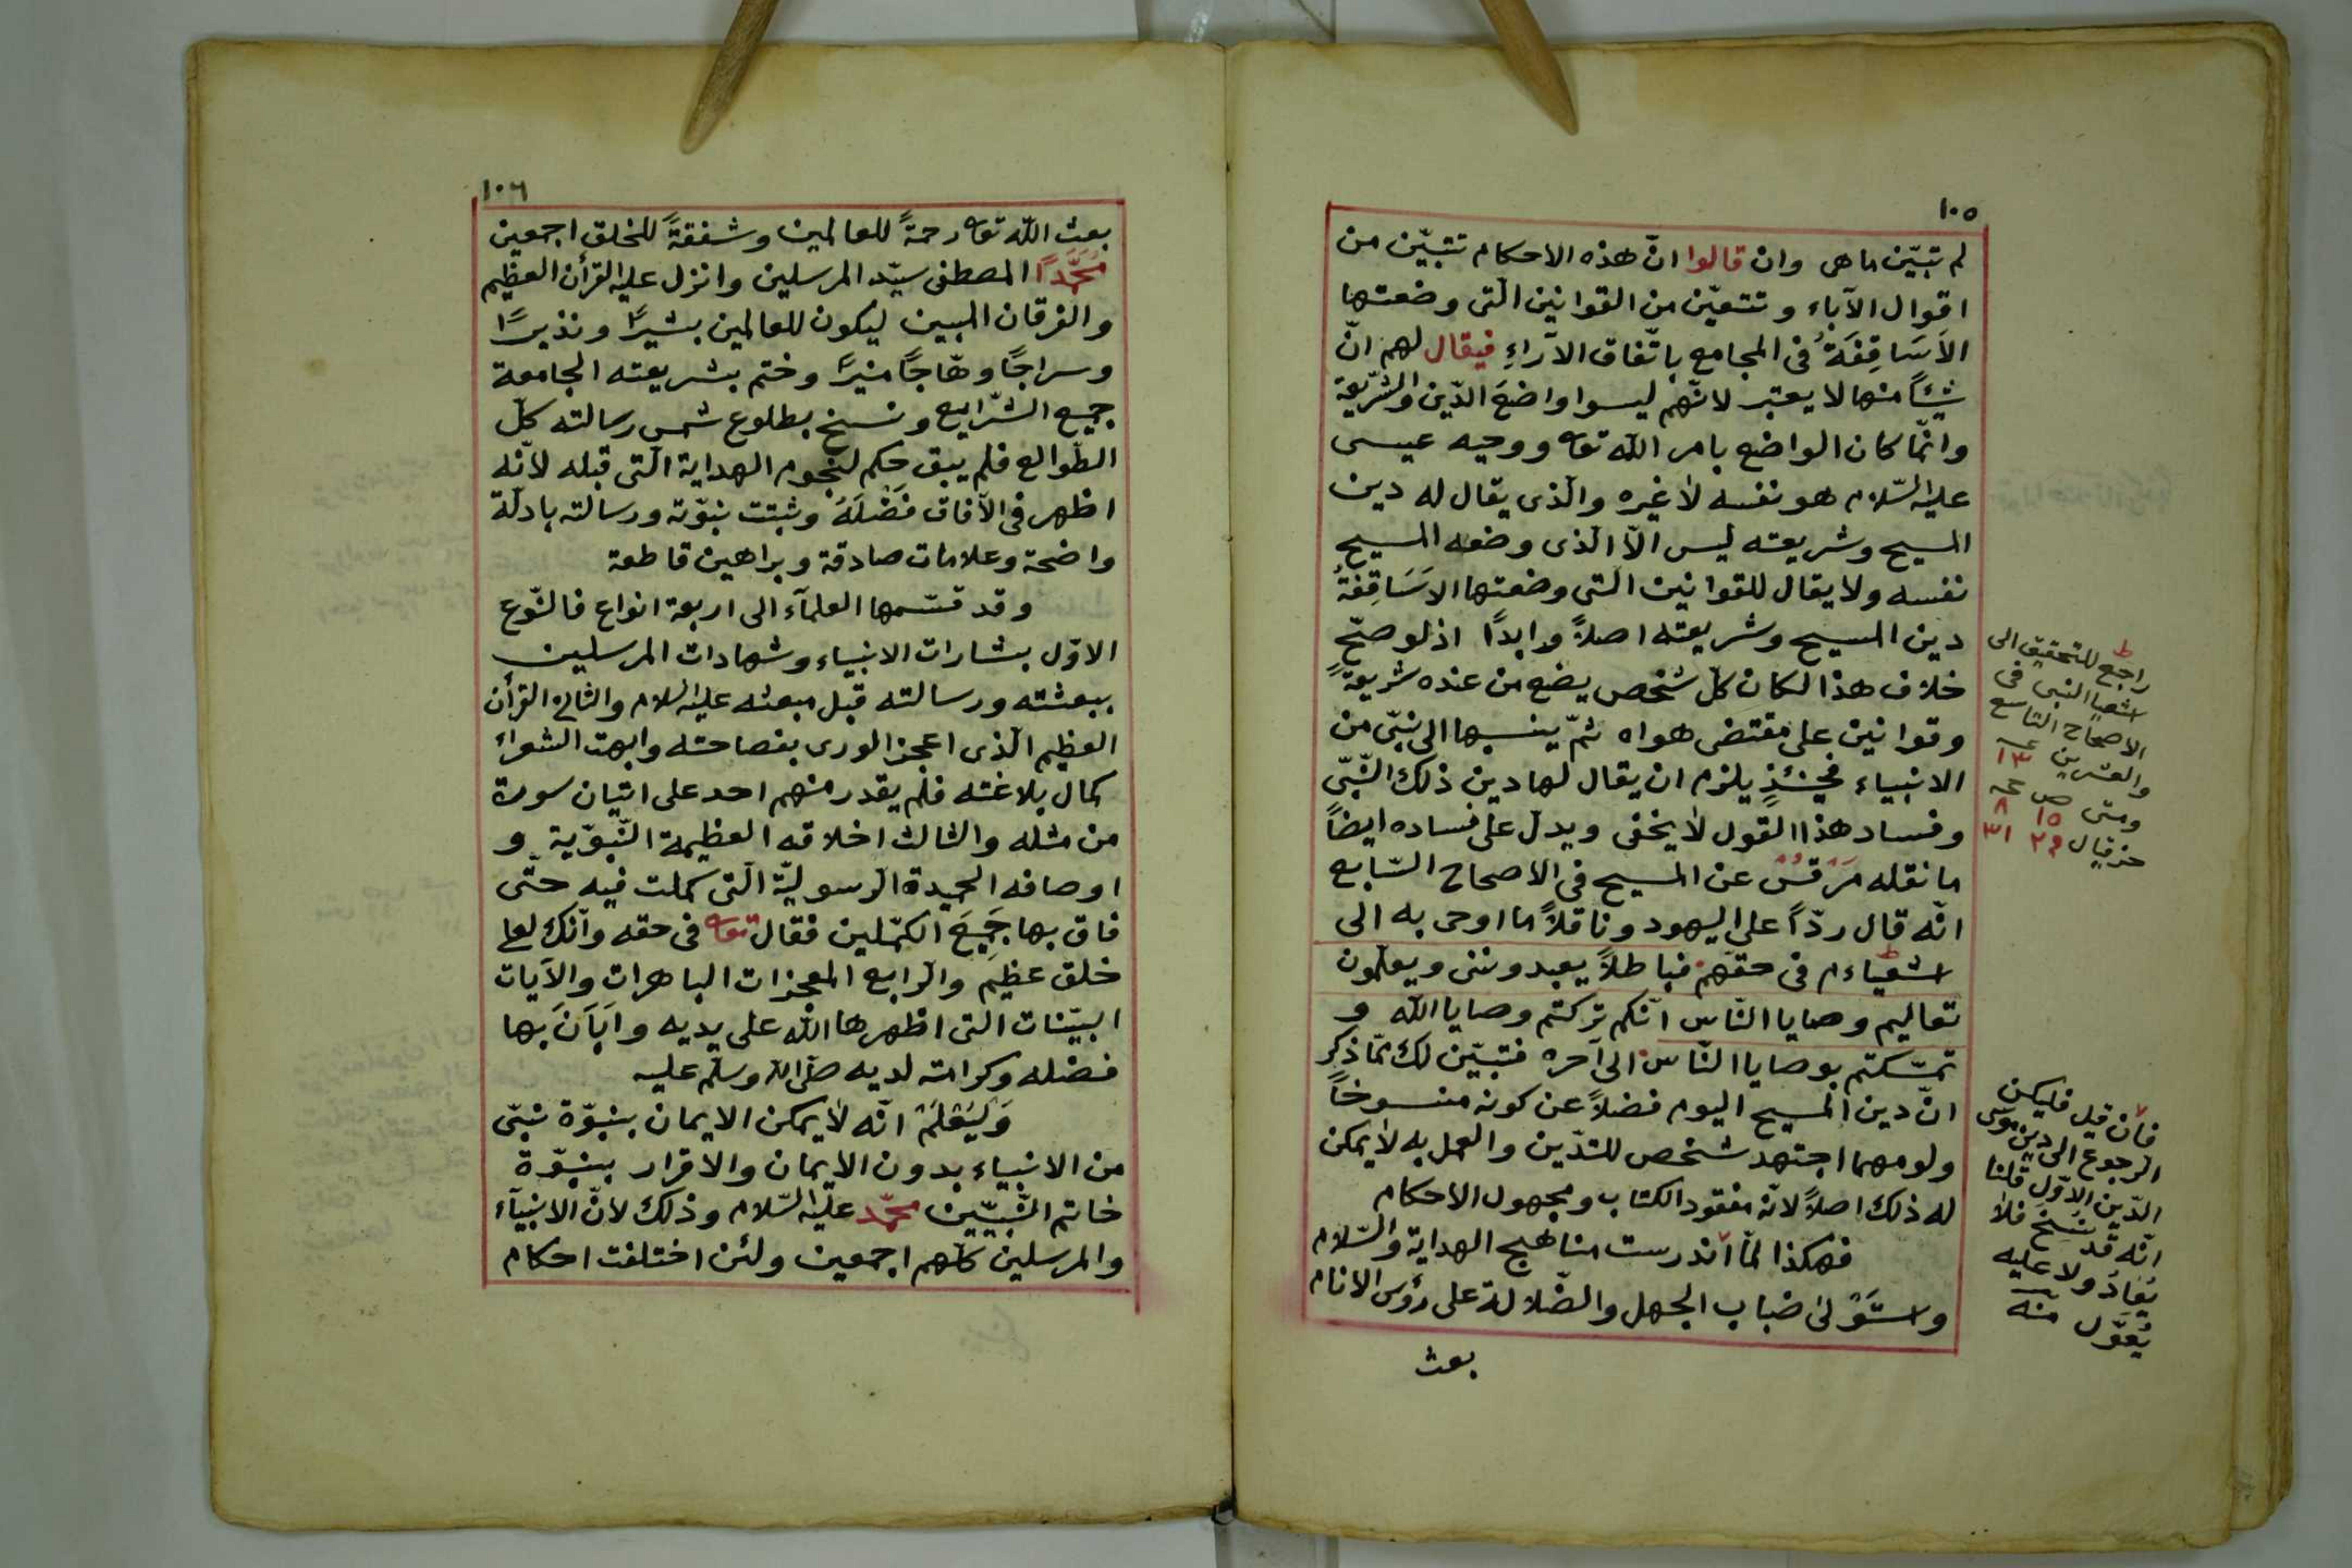 ١٠٥
لم تتبيّن ما هى وان قالوا انّ هذه الاحكام تتبيّن من
اقوال الآباء وتتعيّن من القوانين الّتى وضعتها
الاَسَاقِفَةُ فى المجامع باتّفاق الآراءِ فيقال لهم انّ
شيئاً منها لا يعتبر لانّهم ليسوا واضعَ الدّين والشّريعة
وانّما كان الواضع بامر الله تعه ووحيه عيسى
عليه السّلام هو نفسه لا غيره والّذى يقال له دين
المسيح وشريعته ليس الاّ الّذى وضعه المسيح
نفسه ولا يقال للقوانين الّتى وضعتها الاَسَاقِفَةُ
دين المسيح وشريعته اصلاً وابدًا اذ لو صحّ
خلاف هذا لكان كلّ شخص يضع من عنده شريعةً
وقوانين على مقتضى هواه ثمّ ينسبها الى نبىّ من
الانبياء فحينئذٍ يلزم ان يقال لها دين ذلك النّبىّ
وفساد هذا القول لا يخفى ويدلّ على فساده ايضاً
ما نقله مَرْقُسُ عن المسيح فى الاصحاح السّابع
انّه قال ردّاً على اليهود وناقلاً ما اوحى به الى
اشعياء م فى حقّهم فباطلاً يعبدوننى ويعلّمون
تعاليم وصايا النّاس انّكم تركتم وصايا الله و
تمسّكتم بوصايا النّاس الى آخره فتبيّن لك ممّا ذكر
انّ دين المسيح اليوم فضلاً عن كونه منسوخاً
ولو مهما اجتهد شخص للتديّن والعمل به لا يمكن
له ذلك اصلاً لانّه مفقود الكتاب ومجهول الاحكام
فهكذا لمّا اندرست مناهج الهداية والسّلام
واستَوْلى ضباب الجهل والضّلالة على رؤس الانام
بعث
ط
راجع للتحقيق الى
اشعيا النبى فى
الاصحاح التاسع
والعشرين عـ ١٣
ومتى ص ١٥ عـ ٨
حزقيال ٢٩ ٣١
فان قيل فليكن
الرجوع الى دين موسى
الدّين الاوّل قلنا
انّه قد نسخ فلا
يُعَادُ ولا عليه
يُعَوَّل منه
١٠٦
بعث الله تعه رحمةً للعالمين وشفقةً للخلق اجمعين
مُحَمَّدًا المصطفى سيّد المرسلين وانزل عليه القرأن العظيم
والفرقان المبين ليكون للعالمين بشيرًا ونذيرًا
وسراجًا وهّاجًا منيرًا وختم بشريعته الجامعة
جميع الشّرايع ونسخ بطلوع شمس رسالته كلّ
الطّوالع فلم يبق حكم لنجوم الهداية الّتى قبله لانّه
اظهر فى الآفاق فَضْلَهُ وثبتت نبوّته ورسالته بادلّة
واضحة وعلامات صادقة وبراهين قاطعة
وقد قسّمها العلمآء الى اربعة انواع فالنّوع
الاوّل بشارات الانبياء وشهادات المرسلين
ببعثته ورسالته قبل مبعثه عليه السلام والثانى القرأن
العظيم الّذى اعجز الورى بفصاحته وابهت الشعراء
كمال بلاغته فلم يقدر منهم احد على اتيان سورة
من مثله والثالث اخلاقه العظيمة النّبوّية و
اوصافه الحميدة الرّسوليّة الّتى كملت فيه حتّى
فاق بها جَمِيعَ الكمّلين فقال تعه فى حقه وانّك لعلى
خلق عظيم والرّابع المعجزات الباهرات والآيات
البيّنات الّتى اظهرها الله على يديه واَبَانَ بها
فضله وكرامته لديه صلّى الله وسلّم عليه
وَلْيُعْلَمْ انّه لا يمكن الايمان بنبوّة نبىّ
من الانبياء بدون الايمان والاقرار بنبوّة
خاتم النّبيّين محمّد عليه السّلام وذلك لانّ الانبيآء
والمرسلين كلّهم اجمعين ولئن اختلفت احكام